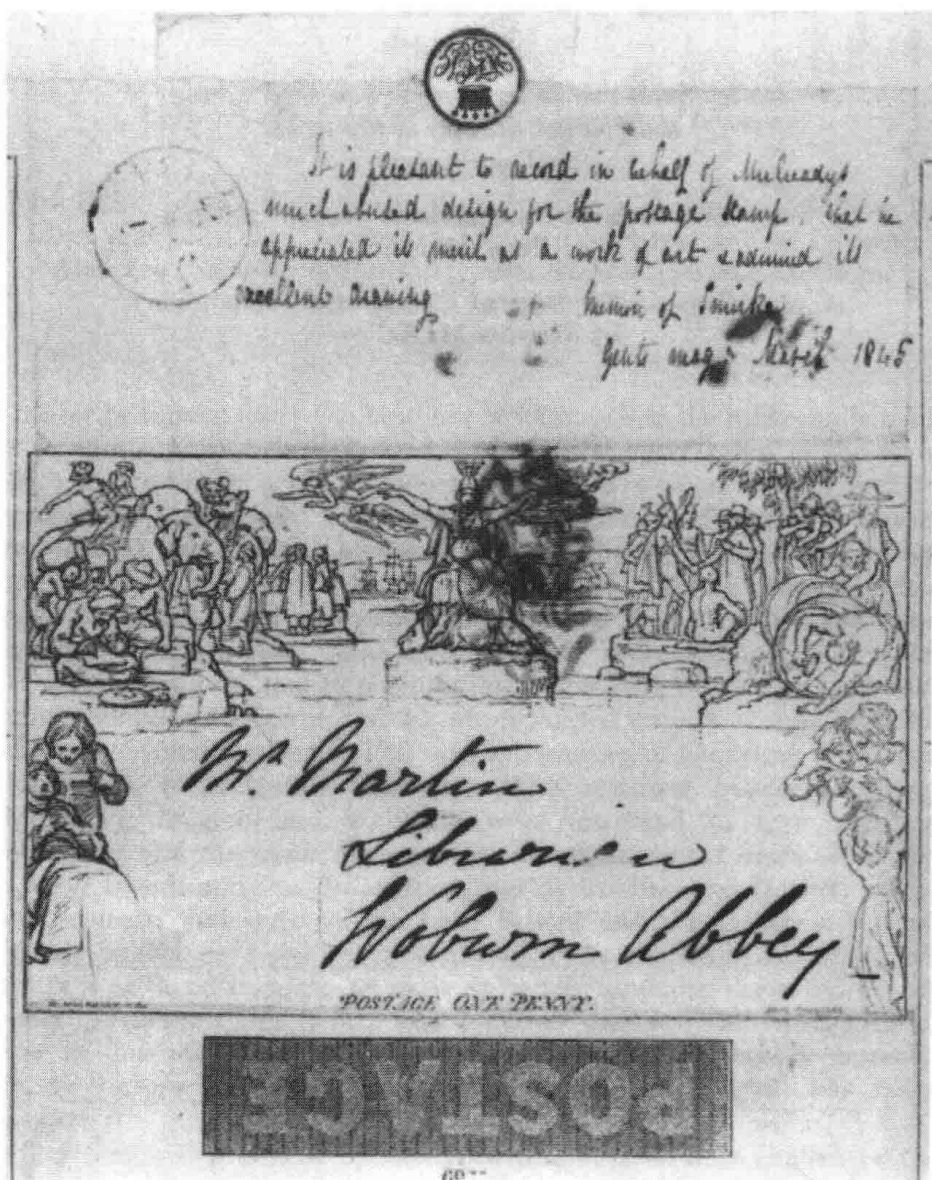 It is pleasant to record in behalf of Mulreadys
much abused design for the postage stamp. that he
appreciated its merit as a work of art & admired its
excellent drawing
Memoir of Smirke
Gents mag: March 1845
Mr. Martin
Librarian
Woburn Abbey
POSTAGE ONE PENNY.
POSTAGE